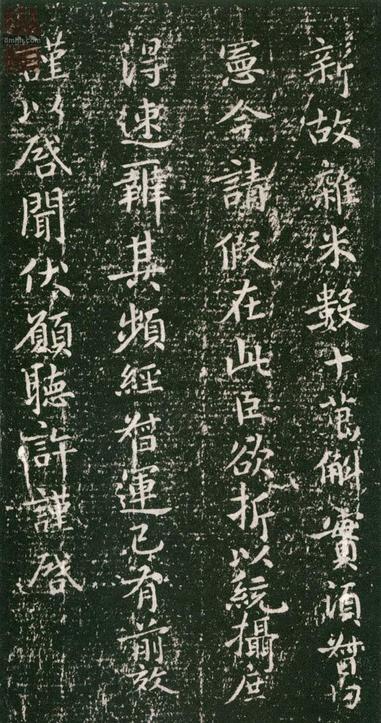 新故雜米數十萬斛實須督
憲令請假在此臣欲折以統攝庶
得速辦其頻經督運已有前效
謹以啓聞伏願聽許謹啓